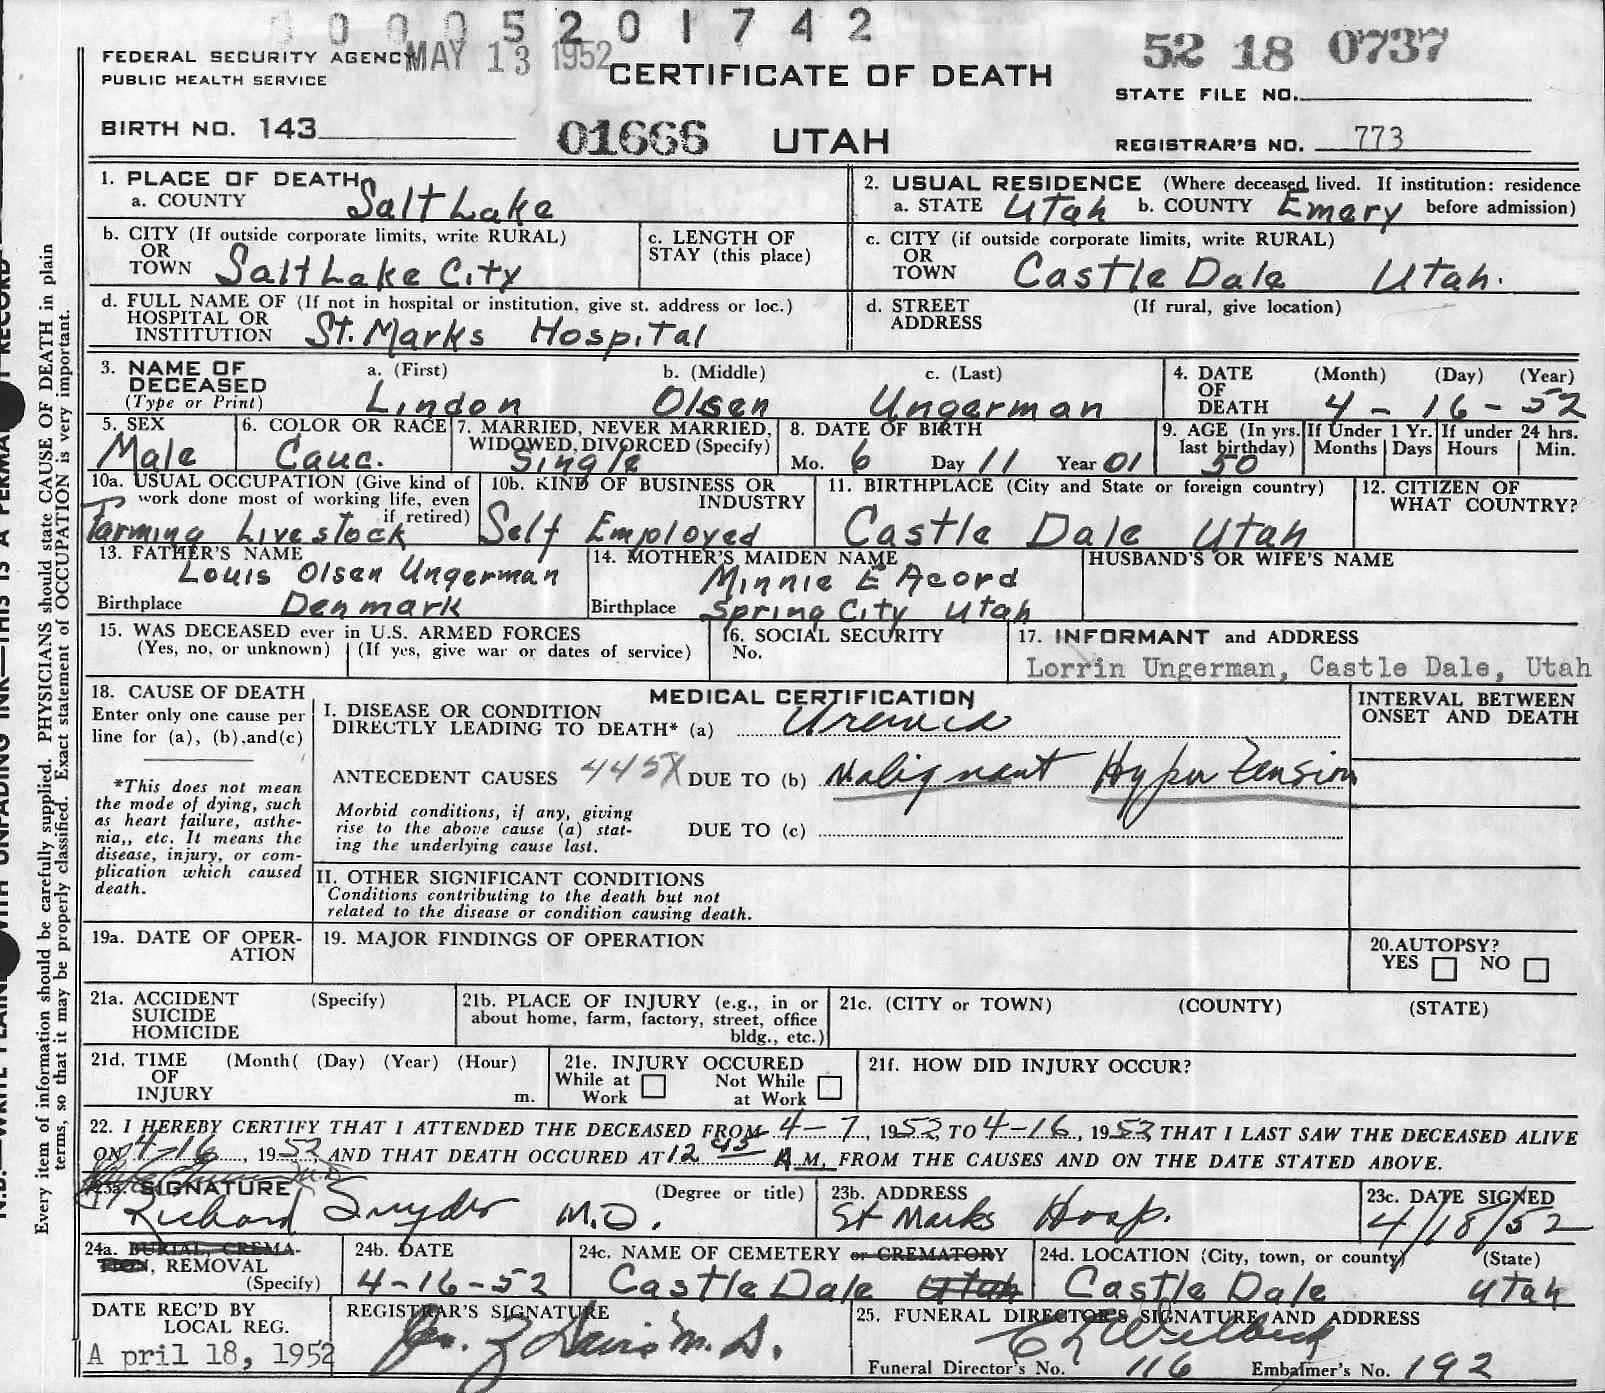 0 0 0 5 2 0 1 7 4 2
FEDERAL SECURITY AGENCY MAY 13 1952
PUBLIC HEALTH SERVICE
CERTIFICATE OF DEATH
52 18 0737
STATE FILE NO.
BIRTH NO. 143
01666 UTAH
REGISTRAR'S NO. 773
1. PLACE OF DEATH
a. COUNTY Salt Lake
2. USUAL RESIDENCE (Where deceased lived. If institution: residence before admission)
a. STATE Utah b. COUNTY Emery
b. CITY (If outside corporate limits, write RURAL)
OR TOWN Salt Lake City
c. LENGTH OF STAY (this place)
c. CITY (if outside corporate limits, write RURAL)
OR TOWN Castle Dale Utah.
d. FULL NAME OF (If not in hospital or institution, give st. address or loc.)
HOSPITAL OR INSTITUTION St. Marks Hospital
d. STREET ADDRESS (If rural, give location)
3. NAME OF DECEASED (Type or Print)
a. (First) b. (Middle) c. (Last)
Lindon Olsen Ungerman
4. DATE OF DEATH (Month) (Day) (Year)
4 - 16 - 52
5. SEX
Male
6. COLOR OR RACE
Cauc.
7. MARRIED, NEVER MARRIED, WIDOWED, DIVORCED (Specify)
Single
8. DATE OF BIRTH
Mo. 6 Day 11 Year 01
9. AGE (In yrs. last birthday)
50
If Under 1 Yr.
Months Days
If under 24 hrs.
Hours Min.
10a. USUAL OCCUPATION (Give kind of work done most of working life, even if retired)
Farming Livestock
10b. KIND OF BUSINESS OR INDUSTRY
Self Employed
11. BIRTHPLACE (City and State or foreign country)
Castle Dale Utah
12. CITIZEN OF WHAT COUNTRY?
13. FATHER'S NAME
Louis Olsen Ungerman
Birthplace Denmark
14. MOTHER'S MAIDEN NAME
Minnie E Acord
Birthplace Spring City Utah
HUSBAND'S OR WIFE'S NAME
15. WAS DECEASED ever in U.S. ARMED FORCES
(Yes, no, or unknown) (If yes, give war or dates of service)
16. SOCIAL SECURITY No.
17. INFORMANT and ADDRESS
Lorrin Ungerman, Castle Dale, Utah
18. CAUSE OF DEATH
Enter only one cause per line for (a), (b), and (c)
*This does not mean the mode of dying, such as heart failure, asthenia,, etc. It means the disease, injury, or complication which caused death.
MEDICAL CERTIFICATION
I. DISEASE OR CONDITION DIRECTLY LEADING TO DEATH* (a) Uremia
ANTECEDENT CAUSES 445X DUE TO (b) Malignant Hypertension
Morbid conditions, if any, giving rise to the above cause (a) stating the underlying cause last.
DUE TO (c)
INTERVAL BETWEEN ONSET AND DEATH
II. OTHER SIGNIFICANT CONDITIONS
Conditions contributing to the death but not related to the disease or condition causing death.
19a. DATE OF OPERATION
19. MAJOR FINDINGS OF OPERATION
20. AUTOPSY?
YES NO
21a. ACCIDENT SUICIDE HOMICIDE (Specify)
21b. PLACE OF INJURY (e.g., in or about home, farm, factory, street, office bldg., etc.)
21c. (CITY or TOWN) (COUNTY) (STATE)
21d. TIME OF INJURY (Month( (Day) (Year) (Hour) m.
21e. INJURY OCCURED
While at Work Not While at Work
21f. HOW DID INJURY OCCUR?
22. I HEREBY CERTIFY THAT I ATTENDED THE DECEASED FROM 4-7, 1952 TO 4-16, 1952 THAT I LAST SAW THE DECEASED ALIVE
ON 4-16, 1952 AND THAT DEATH OCCURED AT 12 45 A M, FROM THE CAUSES AND ON THE DATE STATED ABOVE.
23a. SIGNATURE (Degree or title)
Richard Snyder M.D.
23b. ADDRESS
St Marks Hosp.
23c. DATE SIGNED
4/18/52
24a. BURIAL, CREMATION, REMOVAL (Specify)
24b. DATE
4-16-52
24c. NAME OF CEMETERY or CREMATORY
Castle Dale Utah
24d. LOCATION (City, town, or county) (State)
Castle Dale Utah
DATE REC'D BY LOCAL REG.
A pril 18, 1952
REGISTRAR'S SIGNATURE
25. FUNERAL DIRECTOR'S SIGNATURE AND ADDRESS
Funeral Director's No. 116 Embalmer's No. 192
N.B.—WRITE PLAINLY WITH UNFADING INK—THIS IS A PERMANENT RECORD
Every item of information should be carefully supplied. PHYSICIANS should state CAUSE OF DEATH in plain
terms, so that it may be properly classified. Exact statement of OCCUPATION is very important.